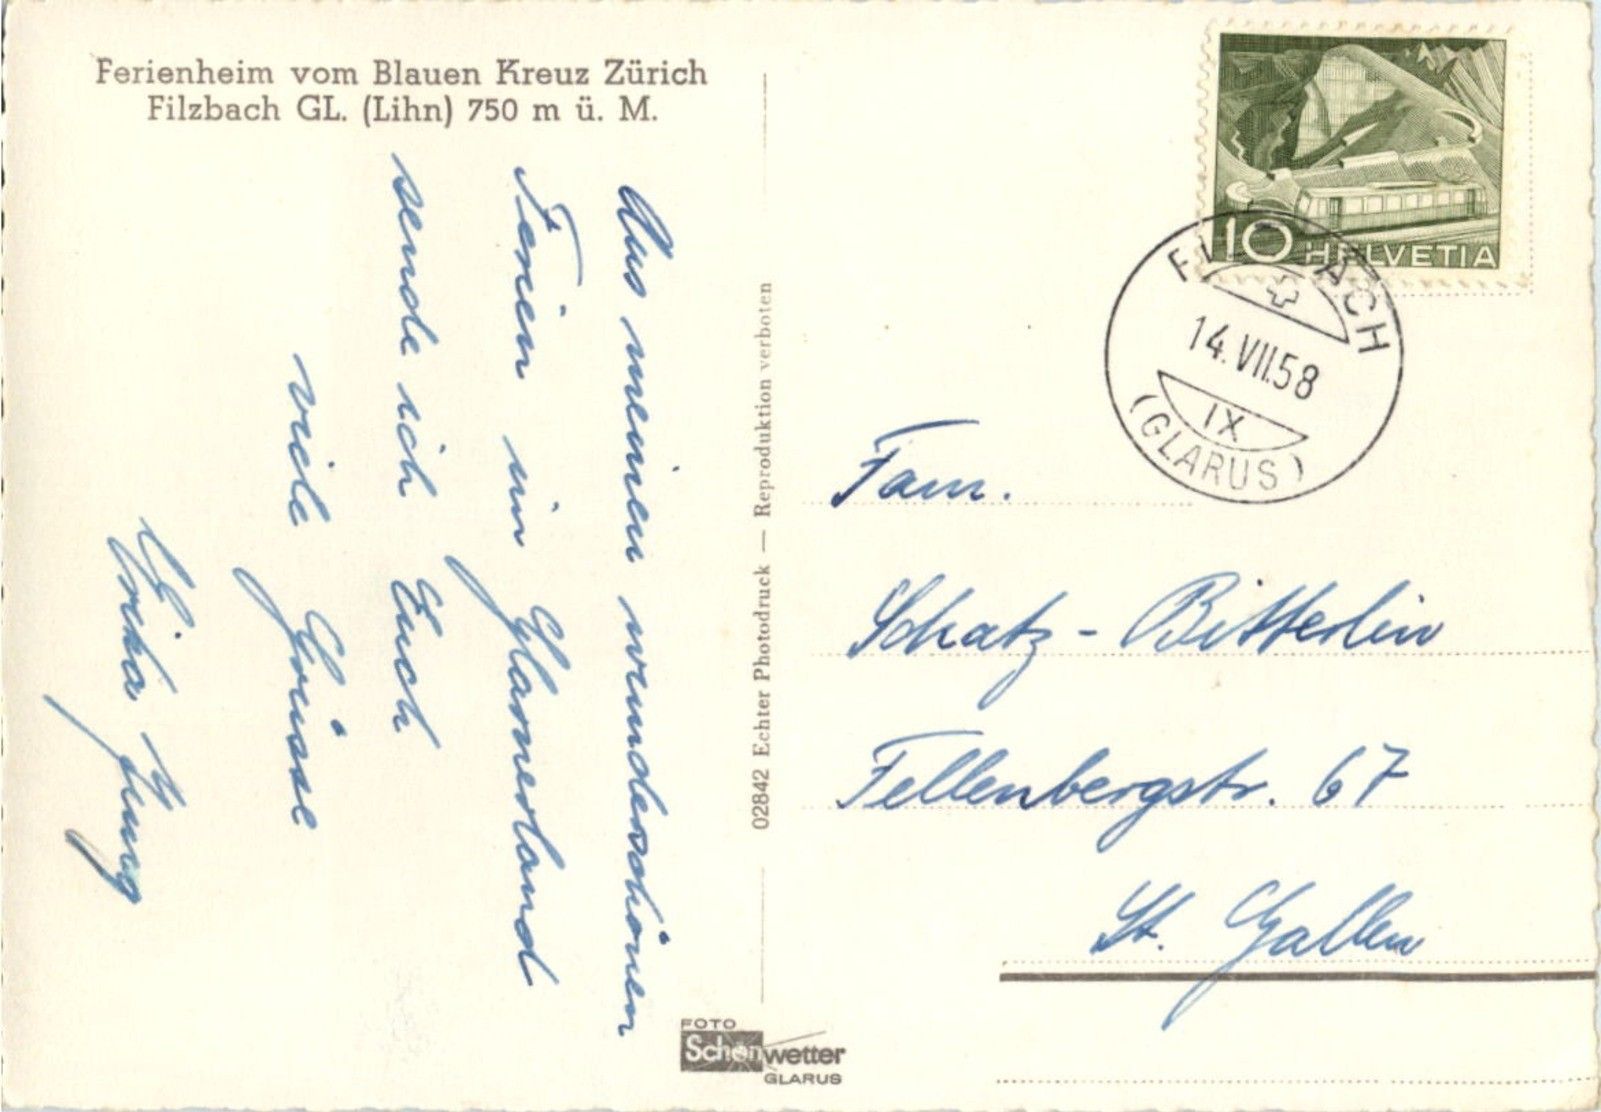 Ferienheim vom Blauen Kreuz Zürich
Filzbach GL. (Lihn) 750 m ü. M.
Aus meinen wunderschönen
Ferien im Glarnerland
sende ich Euch
viele Grüsse
Erika Jung
02842 Echter Photodruck — Reproduktion verboten
FOTO
Schönwetter
GLARUS
10 HELVETIA
14.VII.58
IX
(GLARUS)
Fam.
Schatz-Bitterlin
Fellenbergstr. 67
St. Gallen